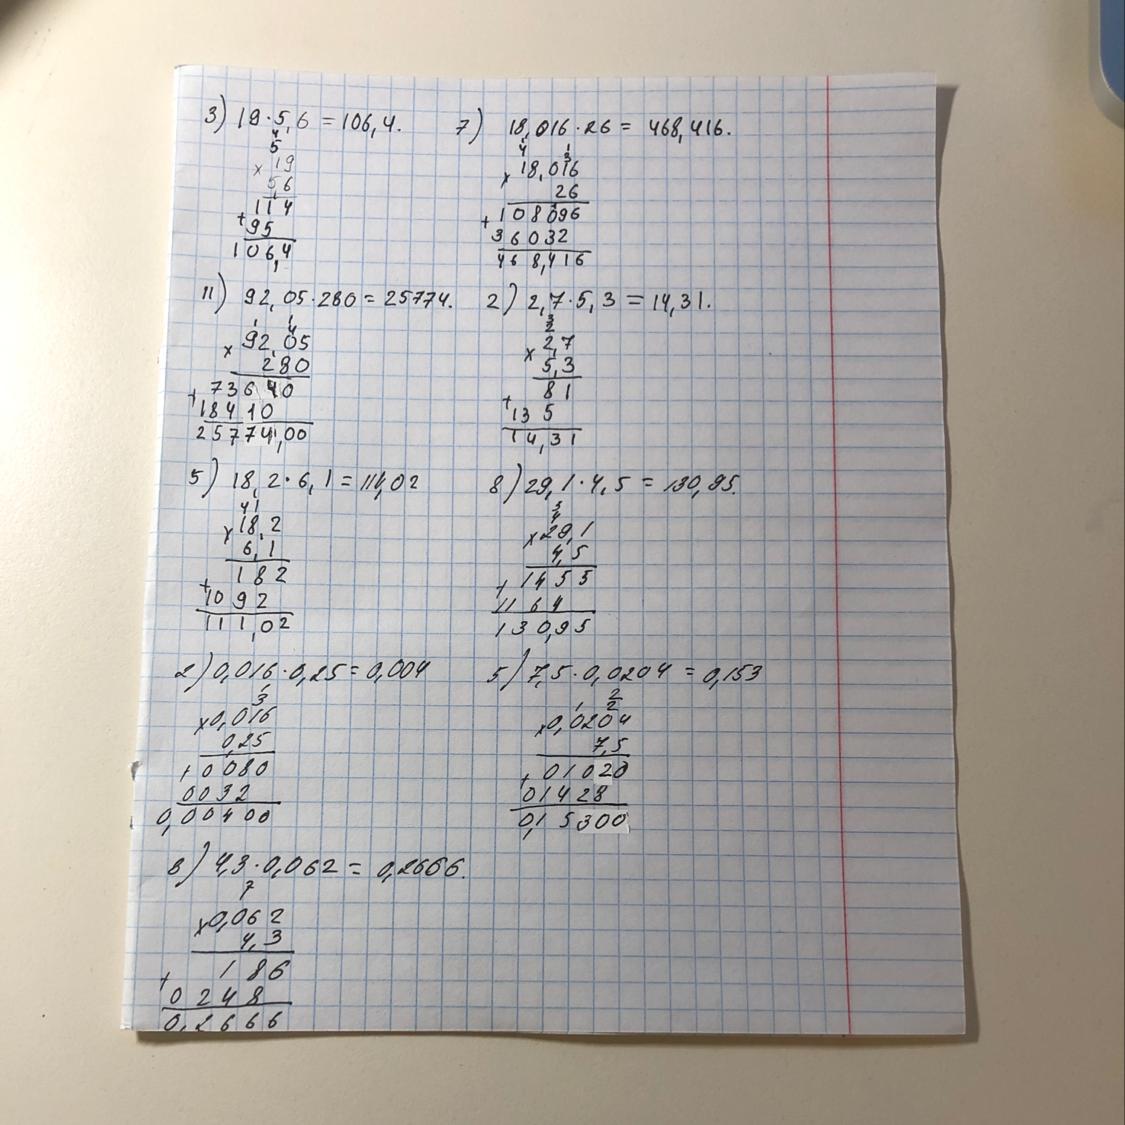 3) 19·5,6 = 106,4.
4
5
× 19
56
1
114
+ 95
106,4
7) 18,016·26 = 468,416.
1 1
4 3
× 18,016
26
108096
+ 36032
468,416
11) 92,05·280 = 25774.
1 4
× 92,05
280
73640
+ 18410
25774,00
2) 2,7·5,3 = 14,31.
3
2
× 2,7
5,3
81
+ 135
14,31
5) 18,2·6,1 = 111,02
41
× 18,2
6,1
182
+ 1092
111,02
8) 29,1·4,5 = 130,95.
3
4
× 29,1
4,5
1455
+ 1164
130,95
2) 0,016·0,25 = 0,004
1
3
× 0,016
0,25
0080
+ 0032
0,00400
5) 7,5·0,0204 = 0,153
2
1 2
× 0,0204
7,5
01020
+ 01428
0,15300
8) 4,3·0,062 = 0,2666.
7
× 0,062
4,3
186
+ 0248
0,2666